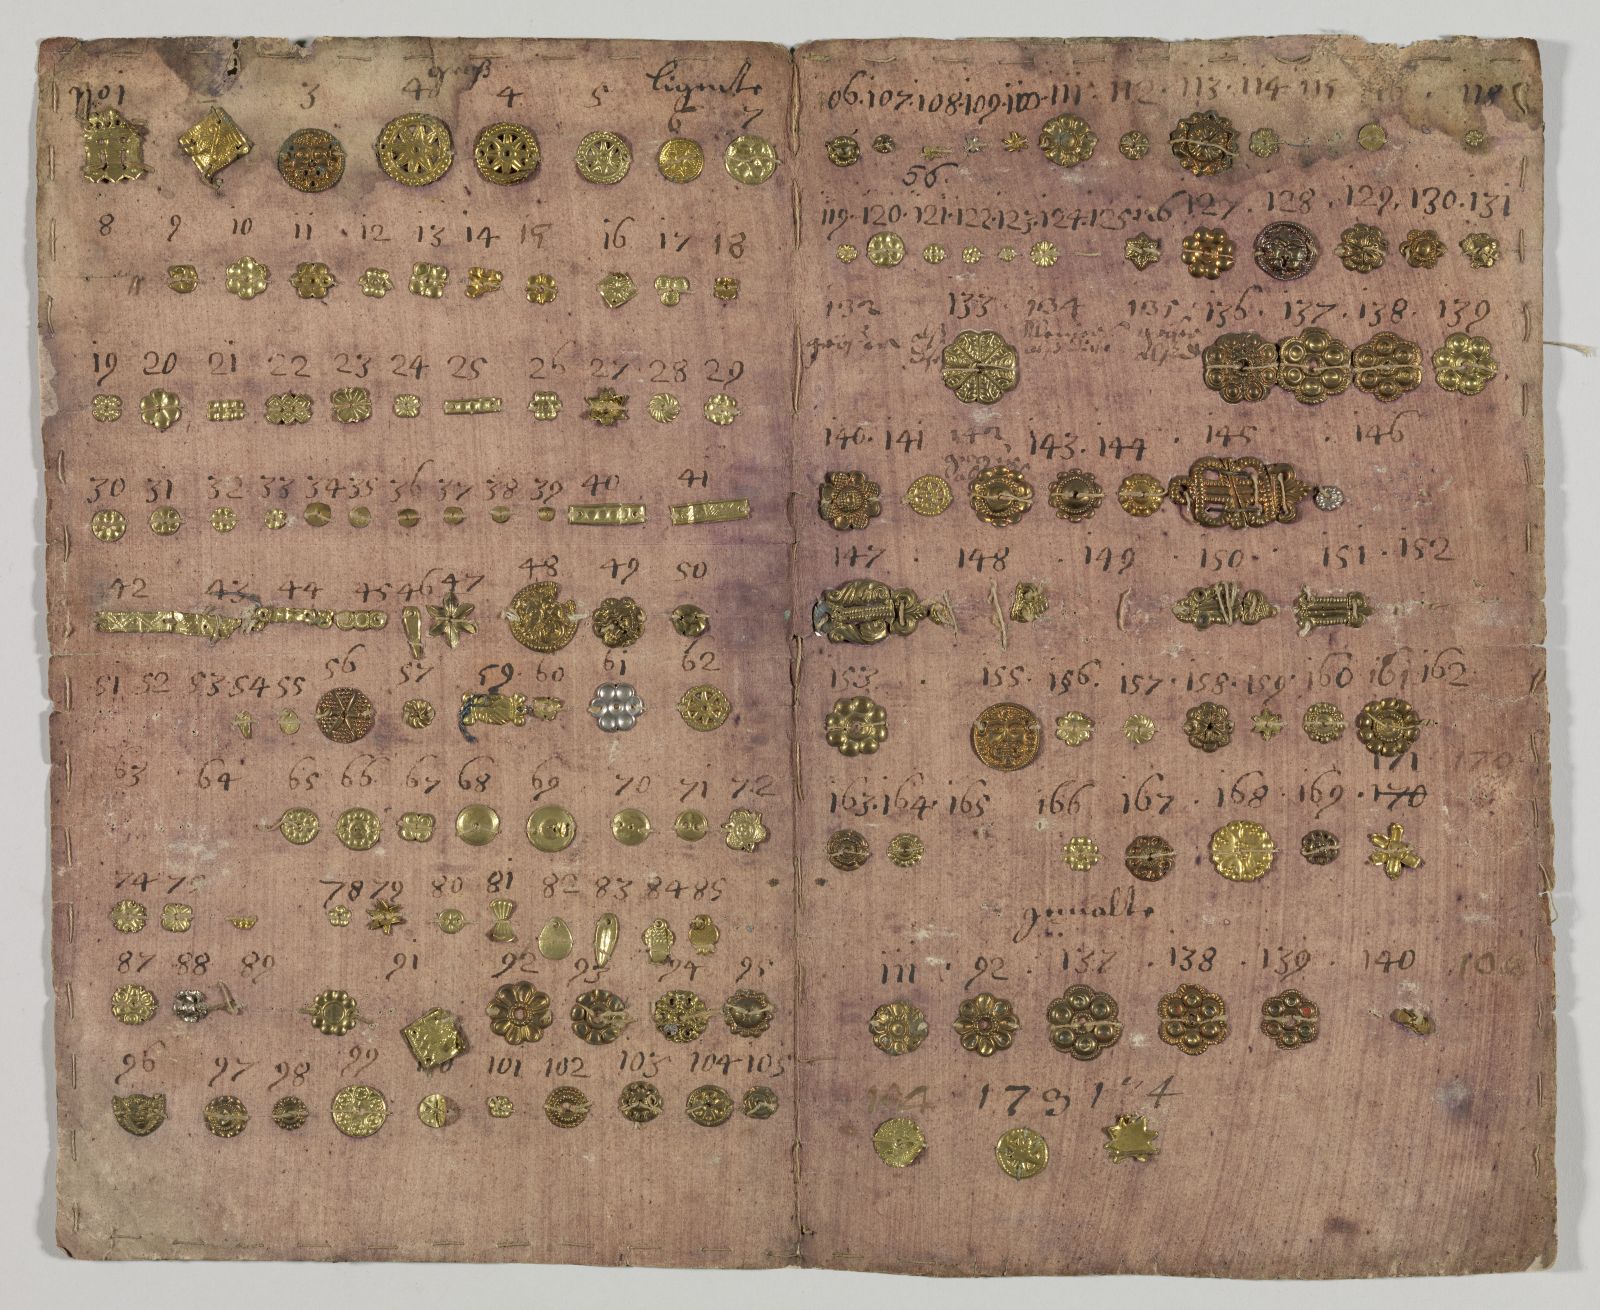 No1 3 4 groß 4 5 lignitte 6 7
8 9 10 11 12 13 14 15 16 17 18
19 20 21 22 23 24 25 26 27 28 29
30 31 32 33 34 35 36 37 38 39 40 41
42 43 44 45 46 47 48 49 50
51 52 53 54 55 56 57 59 60 61 62
63 64 65 66 67 68 69 70 71 72
74 75 78 79 80 81 82 83 84 85
87 88 89 91 92 93 94 95
96 97 98 99 100 101 102 103 104 105
06 107 108 109 110 111 112 113 114 115 118
56
119 120 121 122 123 124 125 126 127 128 129 130 131
132 133 134 135 136 137 138 139
140 141 142 143 144 145 146
147 148 149 150 151 152
153 155 156 157 158 159 160 161 162
171 170
163 164 165 166 167 168 169 170
gemalte
111 92 137 138 139 140
104 173 174